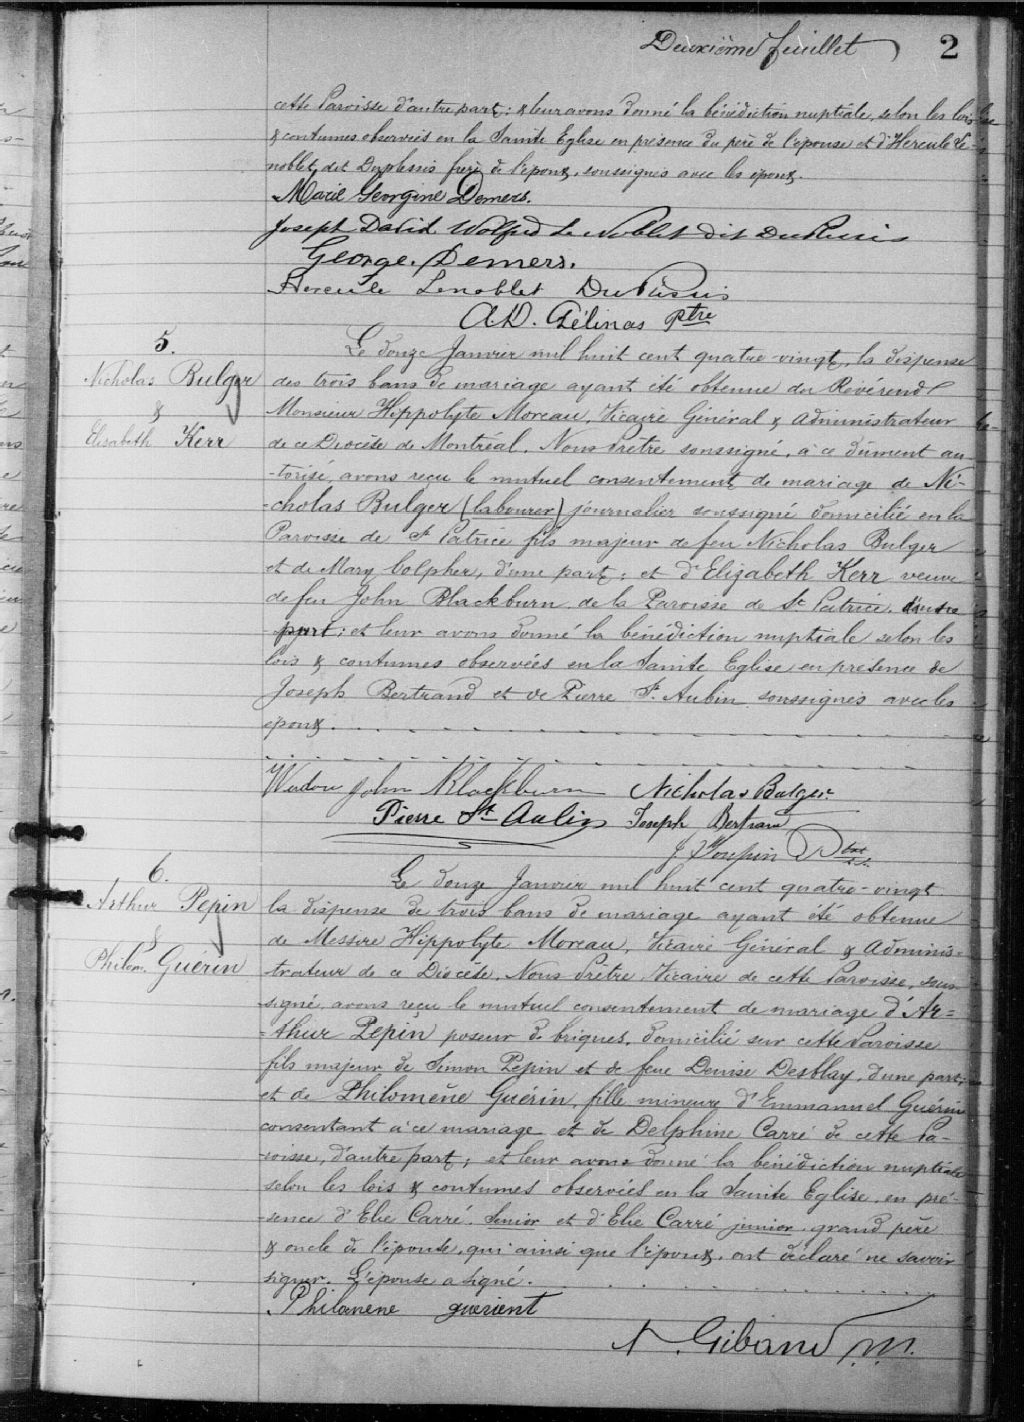 Deuxième feuillet 2
cette Paroisse d'autre part; & leur avons donné la bénédiction nuptiale, selon les lois
& coutumes observées en la Sainte Eglise en présence du père de l'épouse et d'Hercule Le-
noblet dit Duplessis frère de l'époux, soussignés avec les époux.
Marie Georgine Demers.
Joseph David Wolfred Le Noblet dit DuPlessis
George. Demers.
Hercule Lenoblet DuPlessis
A.D. Gélinas Ptre
5.
Nicholas Bulger
&
Elisabeth Kerr
Le douze Janvier mil huit cent quatre-vingt, la dispense
des trois bans de mariage ayant été obtenue du Révérend
Monsieur Hippolyte Moreau, Vicaire Général & Administrateur
de ce Diocèse de Montréal. Nous Prêtre soussigné, à ce dûment au-
-torisé, avons reçu le mutuel consentement de mariage de Ni-
-cholas Bulger (labourer) journalier soussigné domicilié en la
Paroisse de St Patrice fils majeur de feu Nicholas Bulger
et de Mary Colpher, d'une part; et d'Elizabeth Kerr veuve
de feu John Blackburn de la Paroisse de St Patrice, d'autre
part; et leur avons donné la bénédiction nuptiale selon les
lois & coutumes observées en la Sainte Eglise en présence de
Joseph Bertrand et de Pierre St. Aubin soussignés avec les
époux.
Widow John Blackburn Nicholas Bulger
Pierre St Aubin Joseph Bertrand
J. Toupin Ptre
6.
Arthur Pepin
&
Philom. Guérin
Le douze Janvier mil huit cent quatre-vingt
la dispense de trois bans de mariage ayant été obtenue
de Messire Hippolyte Moreau, Vicaire Général & Adminis-
trateur de ce Diocèse, Nous Prêtre, Vicaire de cette Paroisse, sous-
signé, avons reçu le mutuel consentement de mariage d'Ar=
=thur Pepin poseur de briques, domicilié sur cette Paroisse
fils majeur de Simon Pepin et de feue Denise Desblay, d'une part;
et de Philomène Guérin, fille mineure d'Emmanuel Guérin
consentant à ce mariage et de Delphine Carré de cette Pa-
-roisse, d'autre part; et leur avons donné la bénédiction nuptiale
selon les lois & coutumes observées en la Sainte Eglise, en pré-
-sence d'Elie Carré Senior et d'Elie Carré junior, grand père
& oncle de l'épouse, qui ainsi que l'époux, ont déclaré ne savoir
signer. L'épouse a signé.
Philomene guerient
N. Giband